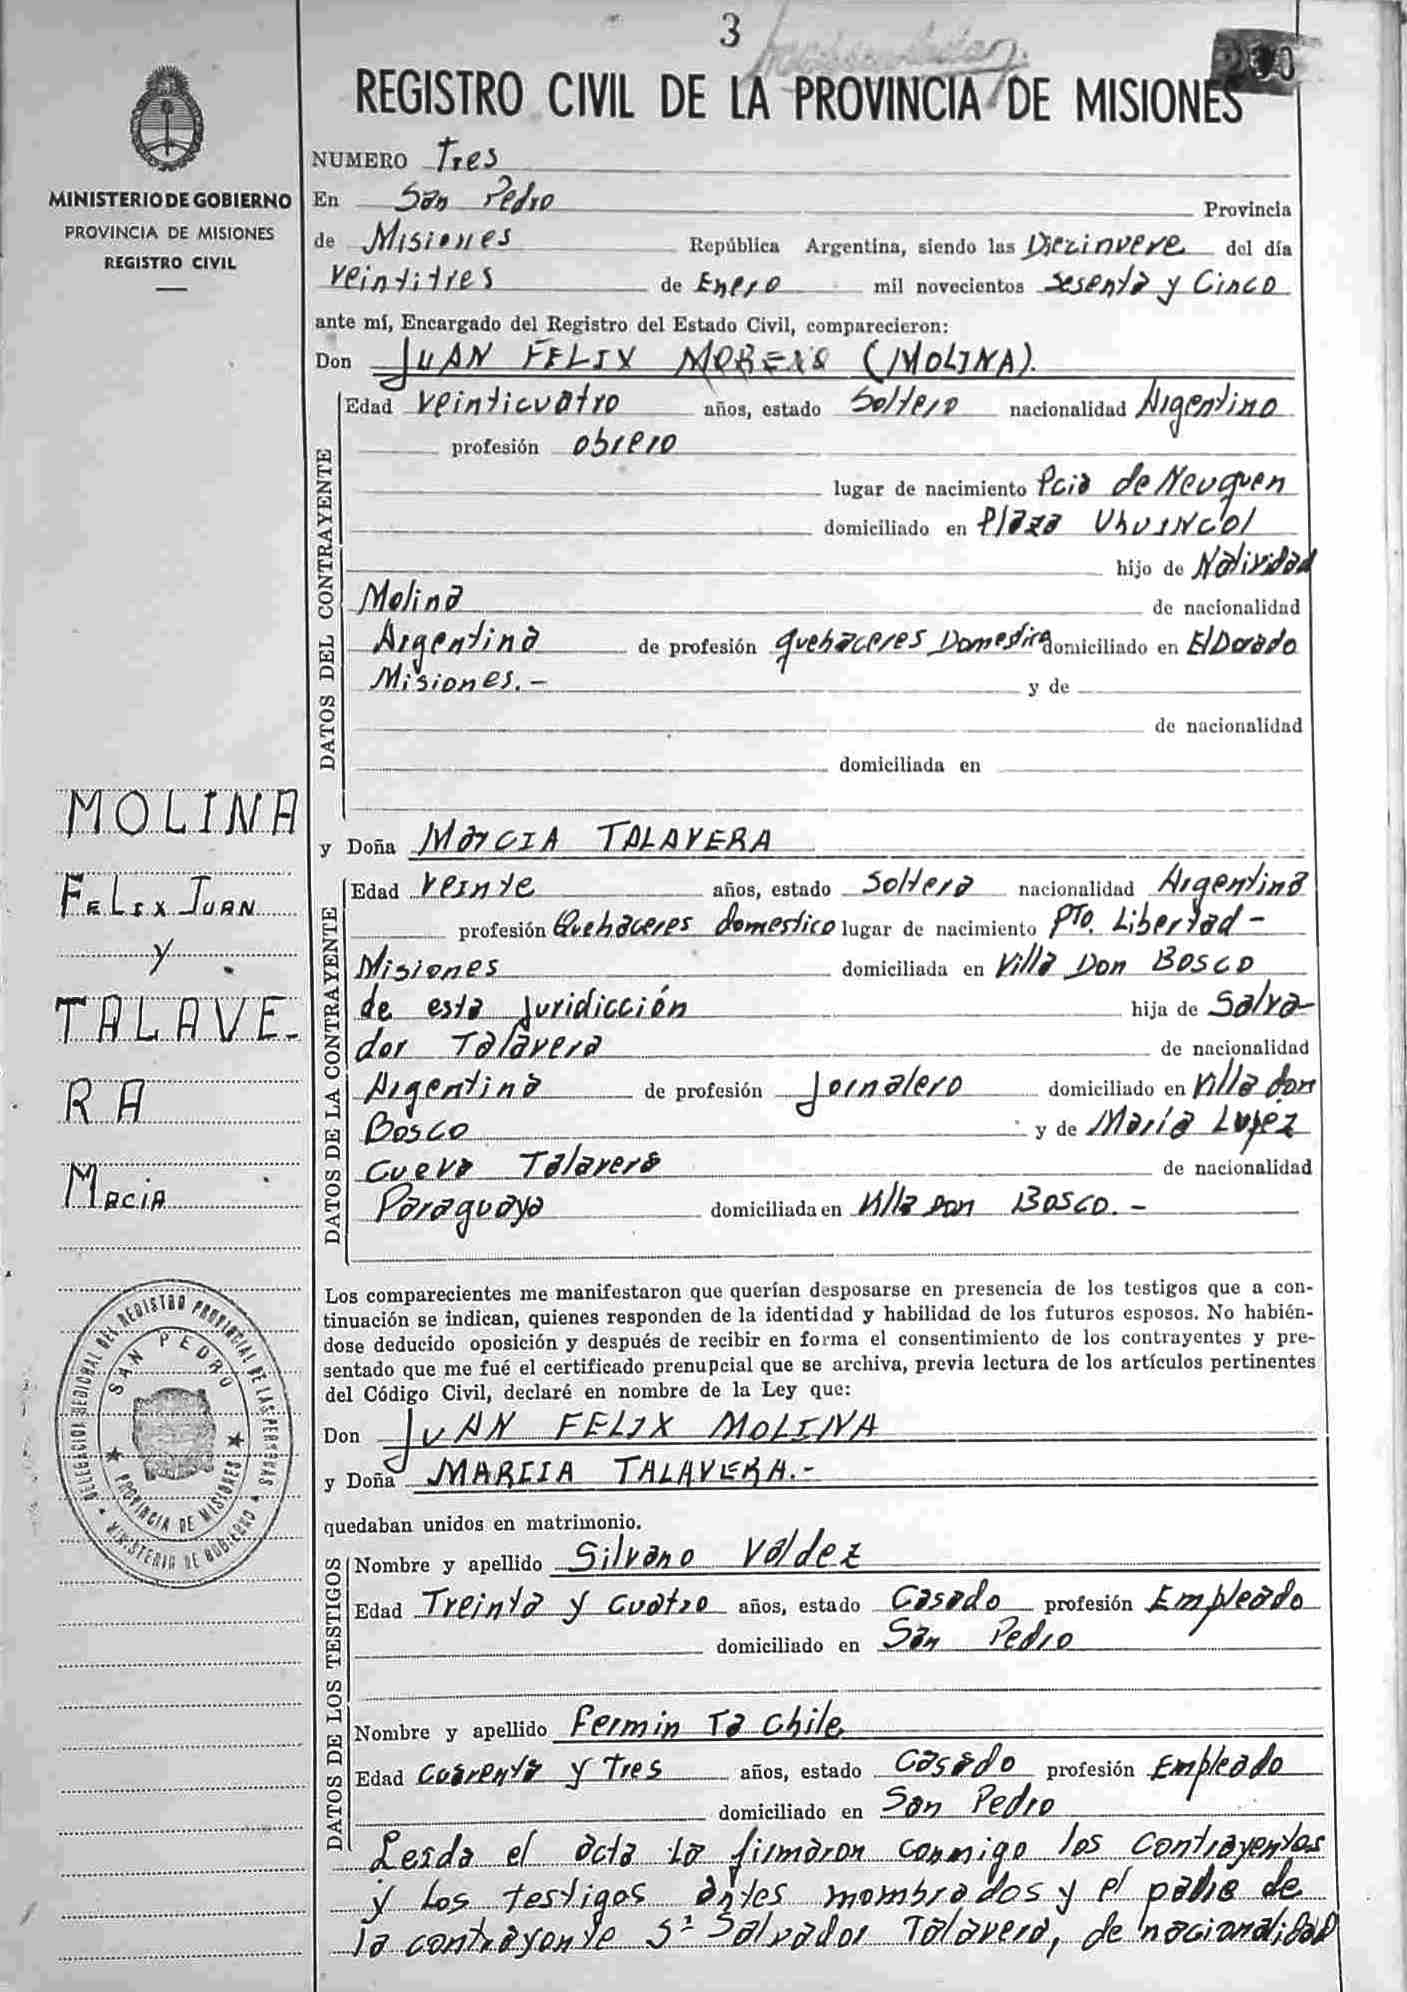 3
REGISTRO CIVIL DE LA PROVINCIA DE MISIONES
MINISTERIO DE GOBIERNO
PROVINCIA DE MISIONES
REGISTRO CIVIL
NUMERO Tres
En San Pedro Provincia
de Misiones República Argentina, siendo las Diecinveve del día
veintitres de Enero mil novecientos sesenta y Cinco
ante mí, Encargado del Registro del Estado Civil, comparecieron:
Don JUAN FELIX MORENO (MOLINA).
DATOS DEL CONTRAYENTE
Edad veinticuatro años, estado Soltero nacionalidad Argentino
profesión obrero
lugar de nacimiento Pcia de Neuquen
domiciliado en Plaza UhuINCol
hijo de Natividad
Molina de nacionalidad
Argentina de profesión quehaceres Domestico domiciliado en ElDorado
Misiones.- y de
de nacionalidad
domiciliada en
y Doña MarCIA TALAVERA
DATOS DE LA CONTRAYENTE
Edad veinte años, estado Soltera nacionalidad Argentina
profesión Quehaceres domestico lugar de nacimiento Pto. Libertad-
Misiones domiciliada en Villa Don Bosco
de esta Juridicción hija de Salva-
dor Talavera de nacionalidad
Argentina de profesión Jornalero domiciliado en Villa don
Bosco y de María Lupéz
Cueva Talavera de nacionalidad
Paraguaya domiciliada en Villa Don Bosco.-
MOLINA
FELIX JUAN
y
TALAVE-
RA
MACIA
Los comparecientes me manifestaron que querían desposarse en presencia de los testigos que a con-
tinuación se indican, quienes responden de la identidad y habilidad de los futuros esposos. No habién-
dose deducido oposición y después de recibir en forma el consentimiento de los contrayentes y pre-
sentado que me fué el certificado prenupcial que se archiva, previa lectura de los artículos pertinentes
del Código Civil, declaré en nombre de la Ley que:
Don JUAN FELIX MOLINA
y Doña MARCIA TALAVERA.-
quedaban unidos en matrimonio.
DELEGACION REGIONAL DEL REGISTRO PROVINCIAL DE LAS PERSONAS
MINISTERIO DE GOBIERNO
SAN PEDRO
PROVINCIA DE MISIONES
DATOS DE LOS TESTIGOS
Nombre y apellido Silvano Valdez
Edad Treinta y cuatro años, estado Casado profesión Empleado
domiciliado en San Pedro
Nombre y apellido Fermin Ta Chile
Edad Cuarenta y Tres años, estado Casado profesión Empleado
domiciliado en San Pedro
Leida el acta la firmaron conmigo los Contrayentes
y los testigos antes mombrados y el padre de
la contrayente Sr Salvador Talavera, de nacionalidad